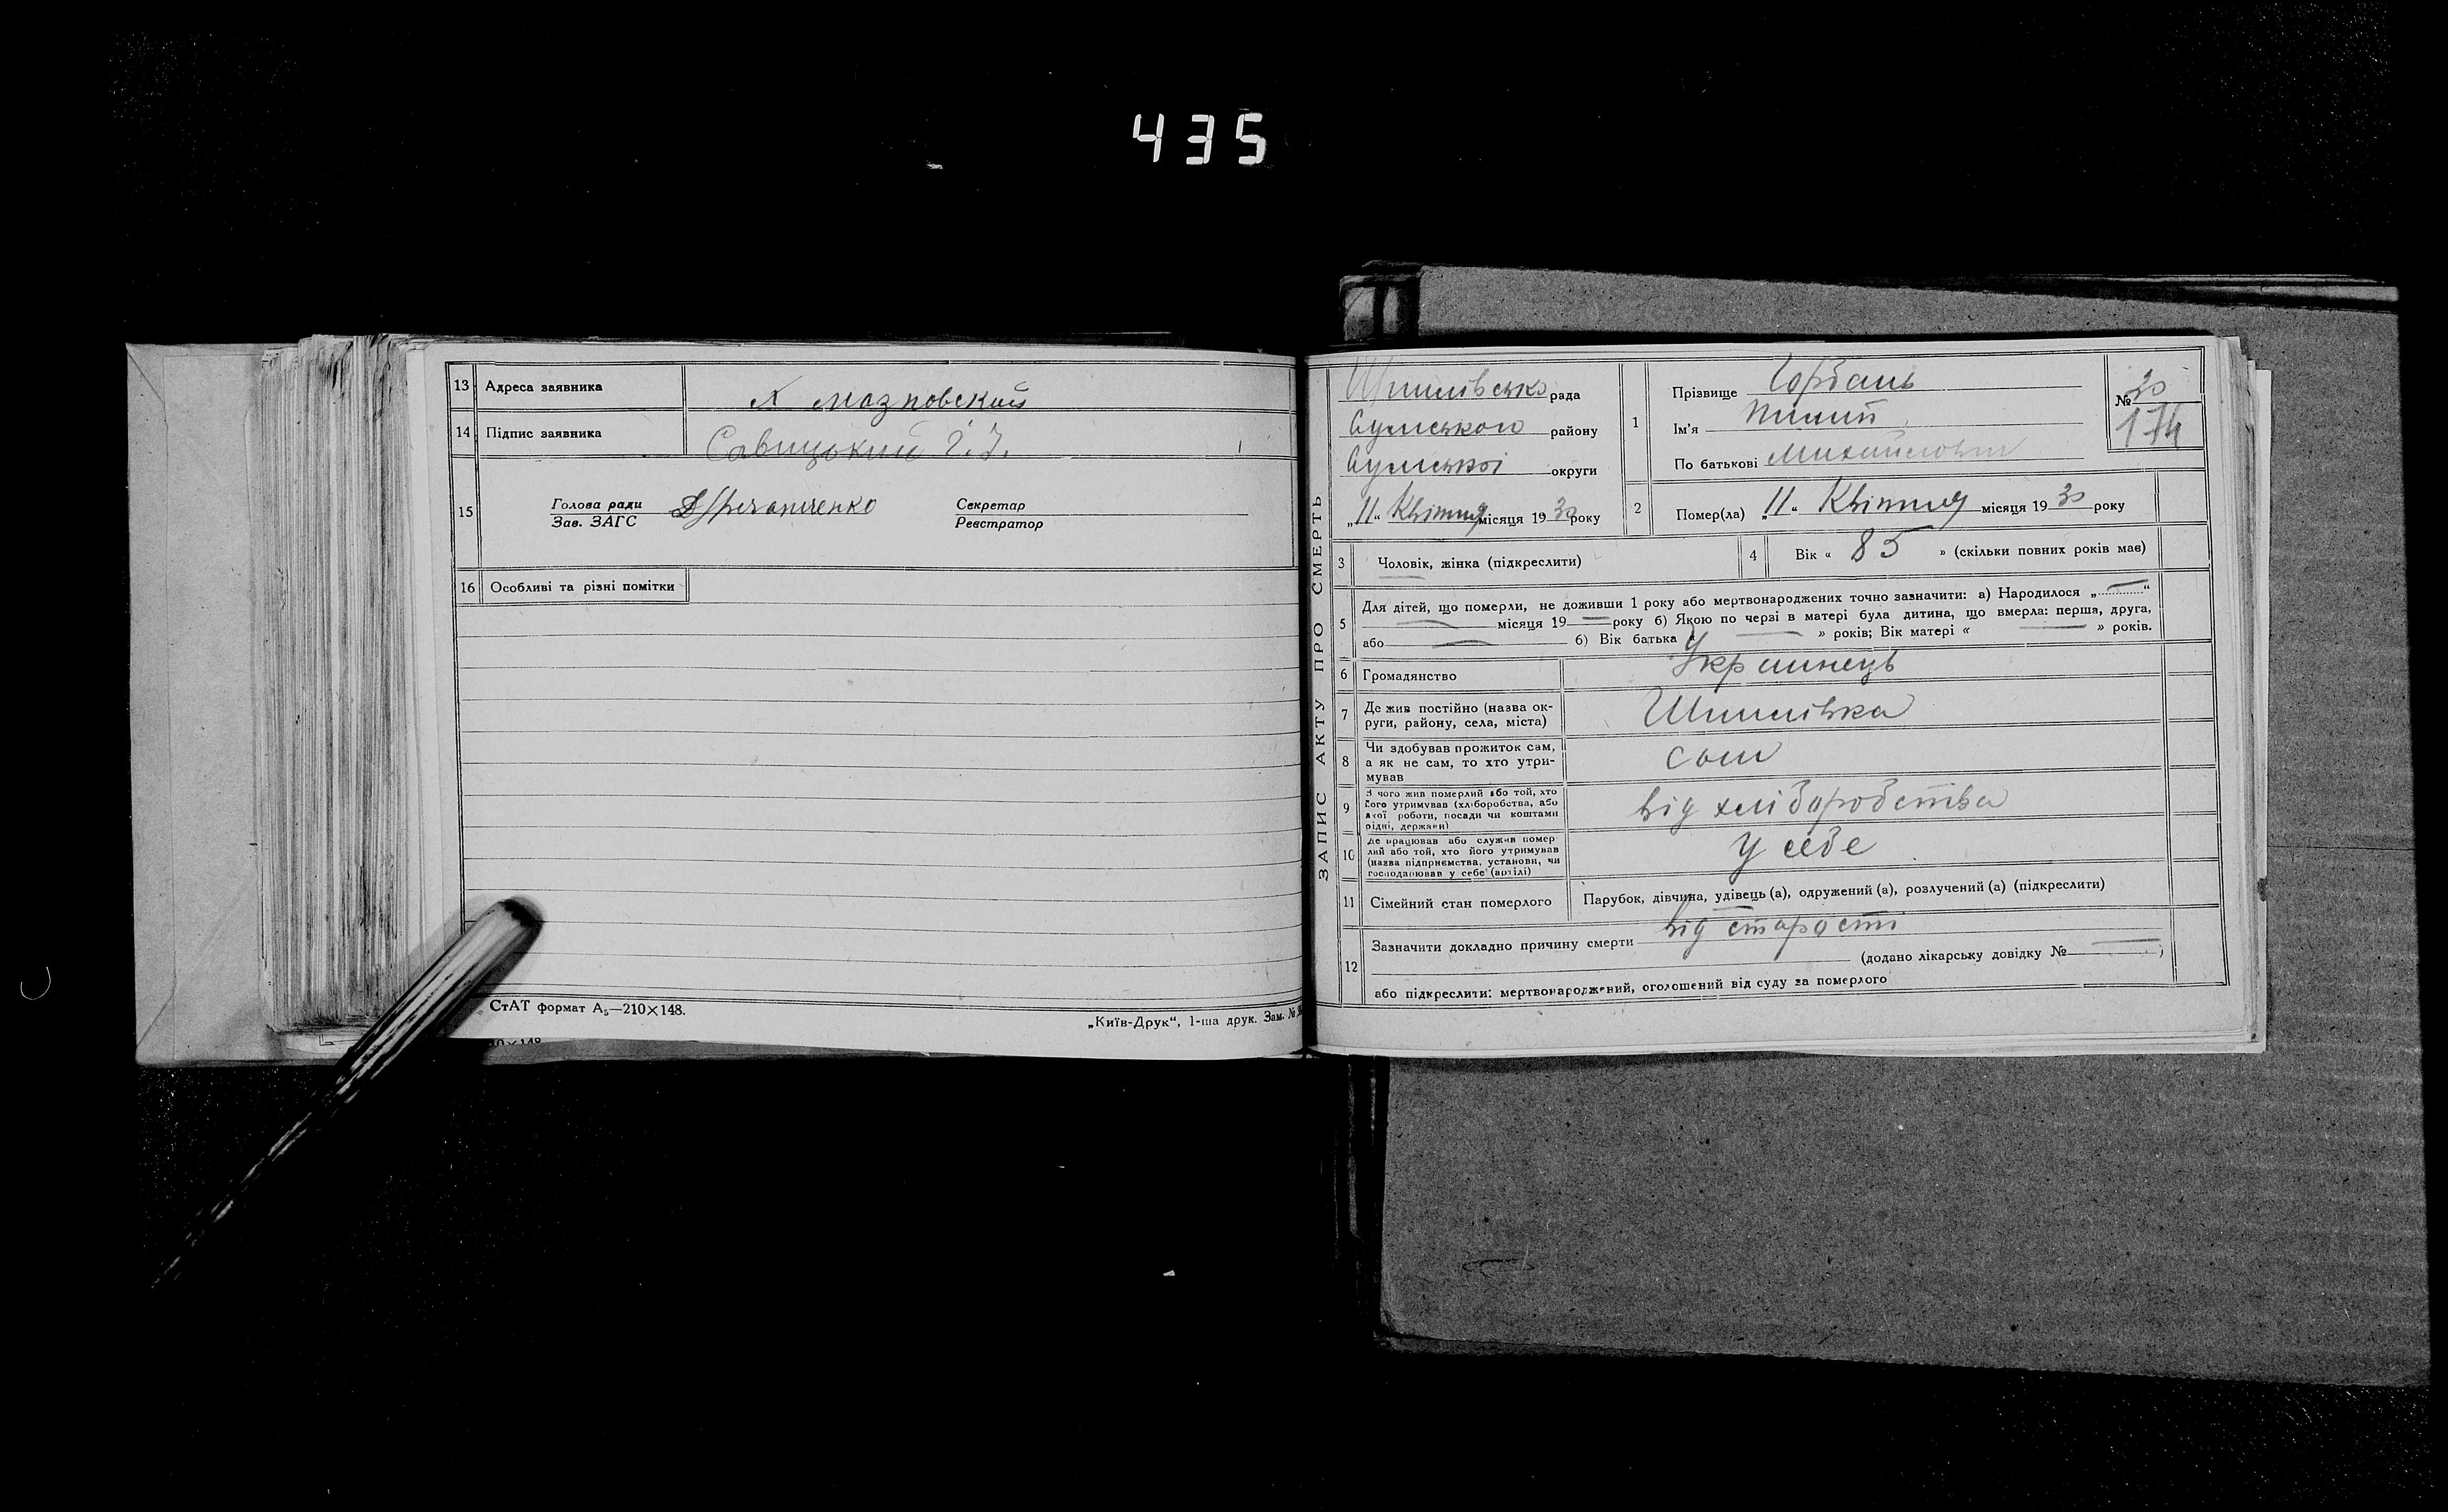 435
13 Адреса заявника х Мазновский
14 Підпис заявника Савицький Г. І.
15 Голова ради
Зав. ЗАГС
Секретар
Реєстратор
16 Особливі та різні помітки
СтАТ формат А₅—210×148.
„Київ-Друк“, 1-ша друк. Зам. №
10×148
ЗАПИС АКТУ ПРО СМЕРТЬ
Шпилівсько рада
Сумського району
Сумської округи
„11“ Квітня місяця 1930 року
1 Прізвище Горбань
Ім'я Пилип
По батькові Михайлович
№ 30
174
2 Помер(ла) „11“ Квітня місяця 1930 року
3 Чоловік, жінка (підкреслити)
4 Вік « 85 » (скільки повних років має)
5 Для дітей, що померли, не доживши 1 року або мертвонароджених точно зазначити: а) Народилося „—“
— місяця 19— року б) Якою по черзі в матері була дитина, що вмерла: перша, друга,
або — б) Вік батька « — » років; Вік матері « — » років.
6 Громадянство Українець
7 Де жив постійно (назва ок-
руги, району, села, міста) Шпилівка
8 Чи здобував прожиток сам,
а як не сам, то хто утри-
мував сам
9 З чого жив померлий або той, хто
його утримував (хліборобства, або
якої роботи, посади чи коштами
рідні, держави) від хліборобства
10 Де працював або служив помер
лий або той, хто його утримував
(назва підприємства, установи, чи
господарював у себе (артілі) у себе
11 Сімейний стан померлого Парубок, дівчина, удівець (а), одружений (а), розлучений (а) (підкреслити)
12 Зазначити докладно причину смерти від старості
(додано лікарську довідку № — )
або підкреслити: мертвонароджений, оголошений від суду за померлого